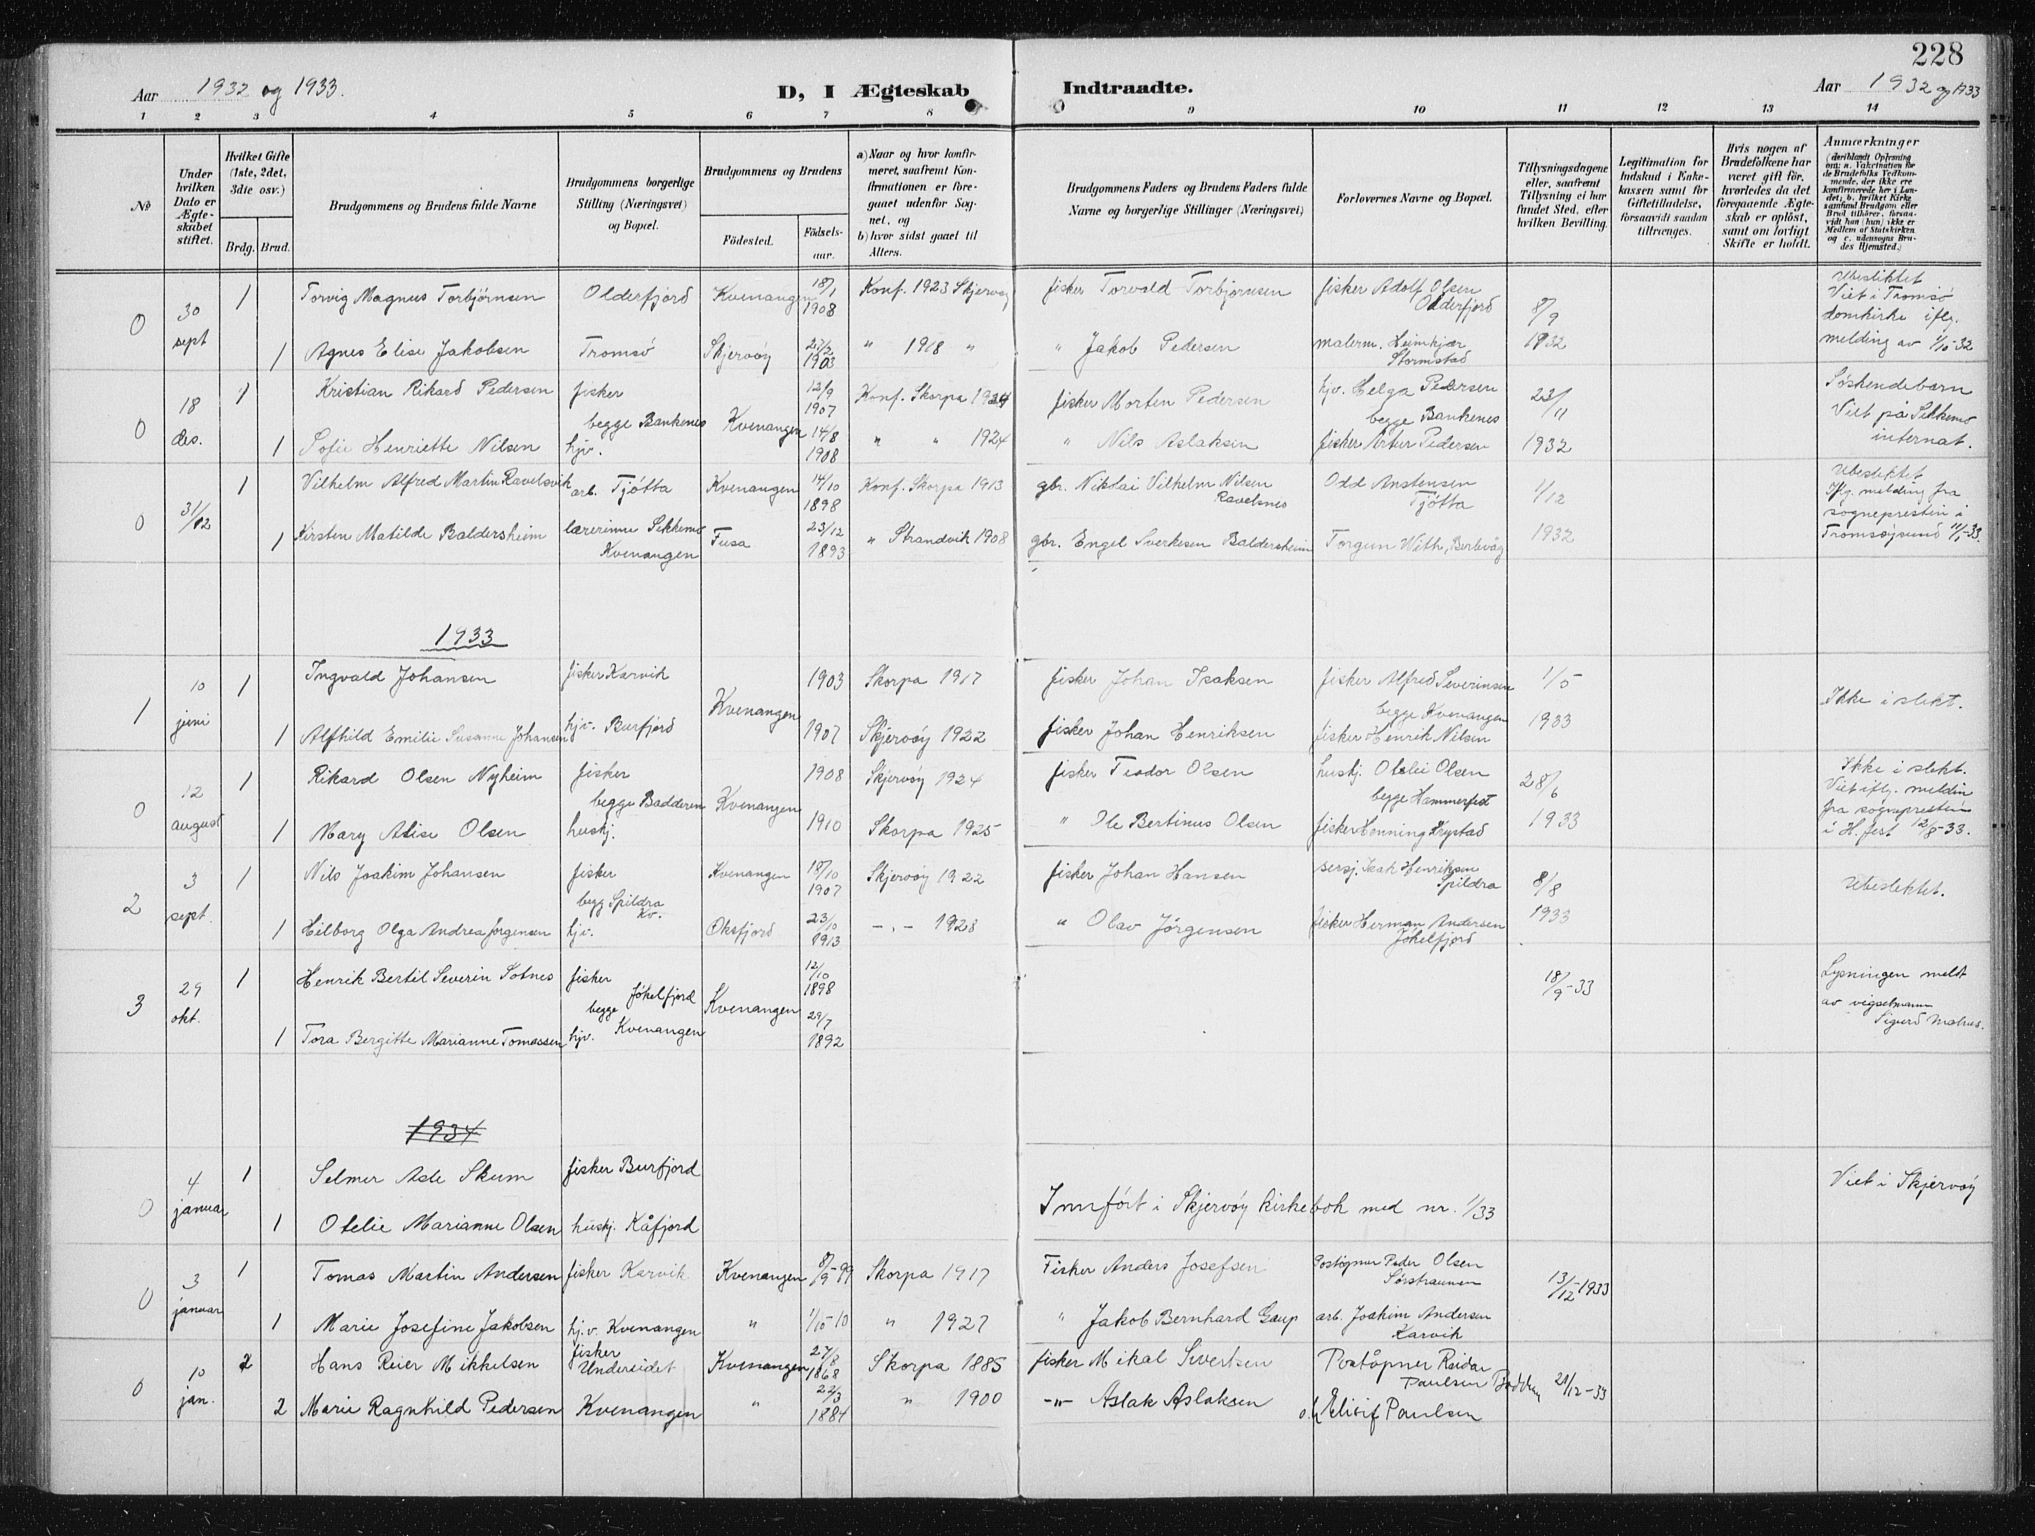 228
Aar 1932 og 1933.
D, I Ægteskab Indtraadte.
Aar 1932 og 1933
1 2 3 4 5 6 7 8 9 10 11 12 13 14
No
Under hvilken Dato er Ægteskabet stiftet.
Hvilket Gifte (1ste, 2det, 3die osv.)
Brdg. Brud.
Brudgommens og Brudens fulde Navne
Brudgommens borgerlige Stilling (Næringsvei) og Bopæl.
Brudgommens og Brudens
Födested.
Födselsaar.
a) Naar og hvor konfirmeret, saafremt Konfirmationen er foregaaet udenfor Sognet, og
b) hvor sidst gaaet til Alters.
Brudgommens Faders og Brudens Faders fulde Navne og borgerlige Stillinger (Næringsvei)
Forlovernes Navne og Bopæl.
Tillysningsdagene eller, saafremt Tillysning ei har fundet Sted, efter hvilken Bevilling.
Legitimation for Indskud i Enkekassen samt for Giftetilladelse, forsaavidt saadan tiltrænges.
Hvis nogen af Brudefolkene har været gift för, hvorledes da det foregaaende Ægteskab er oplöst, samt om lovligt Skifte er holdt.
Anmærkninger
(deriblandt Oplysning om: a. Vakcination for de Brudefolks Vedkommende, der ikke ere konfirmerede her i Landet; b. hvilket Kirkesamfund Brudgom eller Brud tilhörer, forsaavidt han (hun) ikke er Medlem af Statskirken og c. udensogns Brudes Hjemsted.)
0 30 sept 1 Torvig Magnus Torbjørnsen Olderfjord Kvenangen 18/1 1908 Konf. 1923 Skjervøy fisker Torvald Torbjørnsen fisker Adolf Olsen Olderfjord 8/9 1932 Ubeslektet Viet i Tromsö domkirke iflg. melding av 1/10-32
1 Agnes Elise Jakobsen Tromsø Skjervöy 23/2 1903 " 1918 " " Jakob Pedersen malerm. Heimkjær Stormstad
0 18 des. 1 Kristian Rikard Pedersen fisker begge Bankenes Kvenangen 12/9 1907 Konf. Skorpa 1924 fisker Morten Pedersen hjv. Helga Pedersen begge Bankenes 23/11 1932 Søskendebarn Viet på Sekkemo internat.
1 Sofie Henriette Nilsen hjv. 14/8 1908 " " 1924 " Nils Aslaksen fisker Artur Pedersen
0 31/12 1 Vilhelm Alfred Martin Ravelsvik arb. Tjötta Kvenangen 14/10 1898 Konf. Skorpa 1913 gbr. Nikolai Vilhelm Nilsen Ravelsnes Odd Anstensen Tjötta 1/12 1932 Ubeslektet Iflg. melding fra sognepresten i Tromsöysund 11/1-33.
1 Kirsten Matilde Baldersheim lærerinne Sekkemo Kvenangen Fusa 23/12 1893 " Strandvik 1908 gbr. Engel Sverkesen Baldersheim Torgun With, Berlevåg
1933
1 10 juni 1 Ingvald Johansen fisker Karvik Kvenangen 1903 Skorpa 1917 fisker Johan Isaksen fisker Alfred Severinsen begge Kvenangen 1/5 1933 Ikke i slekt.
1 Alfhild Emilie Susanne Johansen hjv. Burfjord 1907 Skjervöy 1922 fisker Johan Henriksen fisker Henrik Nilsen
0 12 august 1 Rikard Olsen Nyheim fisker begge Badderen Kvenangen 1908 Skjervöy 1924 fisker Teodor Olsen huskj. Otelie Olsen begge Hammerfest 28/6 1933 Ikke i slekt. Viet iflg. meldin fra sognepresten i H.fest 12/8-33.
1 Mary Alise Olsen huskj. 1910 Skorpa 1925 " Ole Bertinus Olsen fisker Henning
2 3 sept. 1 Nils Joakim Johansen fisker begg Spildra Kv. Kvenangen 18/10 1907 Skjervöy 1922 fisker Johan Hansen Isak Henriksen Spildra 8/8 1933 Ubeslektet.
1 Hilborg Olga Andrea Jörgensen hjv. Oksfjord 23/10 1913 -,,- 1928 " Olav Jörgensen fisker Herman Andersen Jökelfjord
3 29 okt. 1 Henrik Bertil Severin Sotnes fisker begge Jökelfjord Kvenangen Kvenangen 12/10 1898 18/9-33 Lysningen meldt av vigselmann Sigurd
1 Tora Bergitte Marianne Tomassen hjv. 29/7 1892
1934
0 4 januar 1 Selmer Asle Skum fisker Burfjord Innfört i Skjervöy kirkebok med nr. 1/33 Viet i Skjervöy
1 Otelie Marianne Olsen huskj. Kåfjord
0 3 januar 1 Tomas Martin Andersen fisker Karvik Kvenangen 8/9-99 Skorpa 1917 Fisker Anders Josefsen Postöpner Peder Olsen Sörstraumen 13/12-1933
1 Marie Josefine Jakobsen hj.v. Kvenangen " 1/10-10 " 1927 " Jakob Bernhard Gaup arb. Joakim Andersen Karvik
0 10 jan. 2 Hans Reier Mikkelsen fisker Undereidet Kvenangen 27/8 1868 Skorpa 1885 fisker Mikal Sivertsen Postöpner Reidar Paulsen 21/12-33
2 Marie Ragnhild Pedersen Kvenangen " 22/3 1884 " 1900 -"- Aslak Aslaksen o. Elisif Paulsen